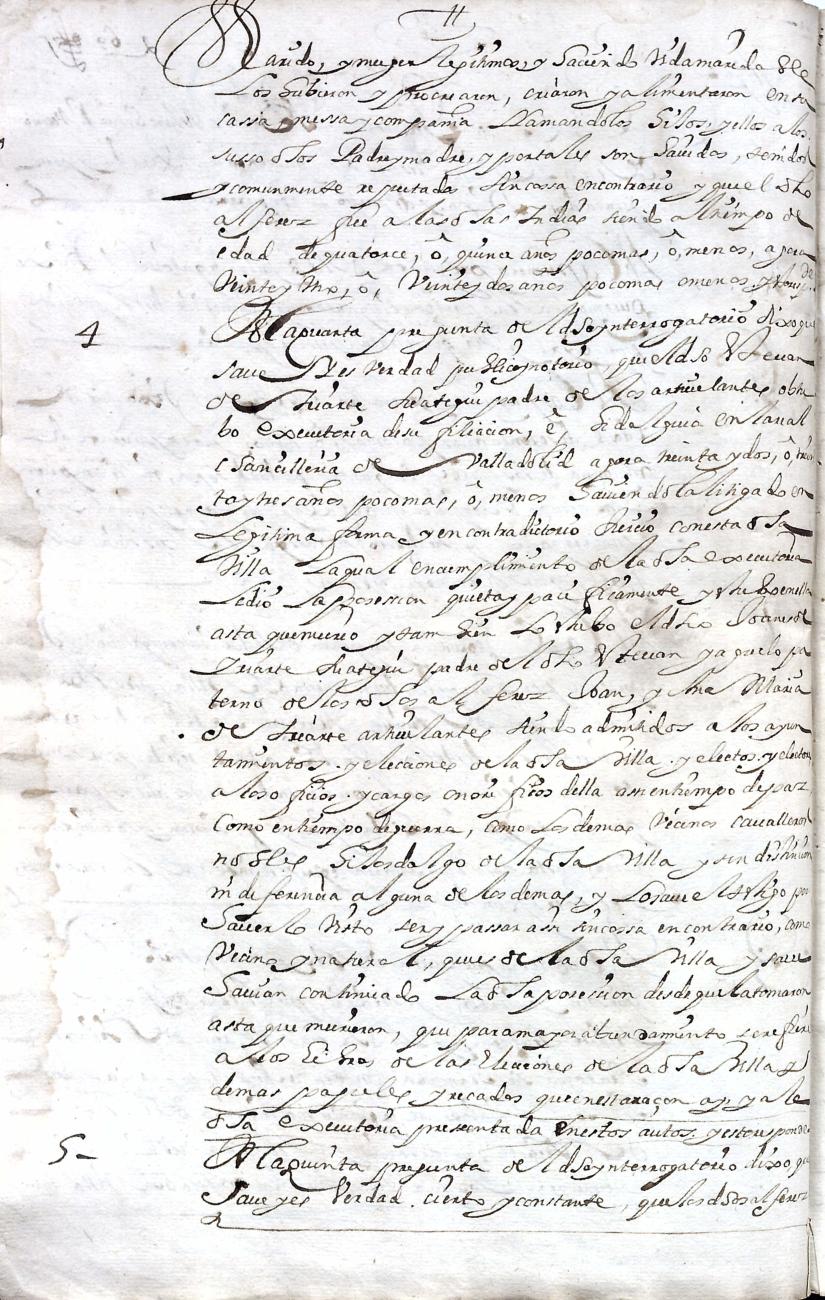 Marido, y muger legitimos, y haviendo vida maridable
Los hubieron y procrearon, criaron y alimentaron en su
cassa, messa y compania llamandolos hijos, y ellos a los
susso dhos Padre y madre, y por tales son havidos, tenidos
y comunmente reputados sin cossa en contrario y que el dho
alferez fue a las dhas Indias siendo al tiempo de
edad de quatorce, ô, quince años poco mas, ô, menos, agora
veinte y uno, ô, veinte y dos años poco mas o menos
4
A la quarta pregunta del dho ynterrogatorio dixo que
save y es verdad publico y notorio que el dho Estevan
de Iriarte padre de los articulantes obtu
bo executoria de su filiacion, ê, hidalguia en la real
Chancilleria de Valladolid agora treinta y dos, ô, trein
ta y tres años poco mas, ô, menos haviendo la litigado en
Legitima forma y en contradictorio Juicio con esta dha
villa La qual en cumplimiento de la dha executoria
Le dio la posesion quieta y pacificamente y
asta que murio y tam bien Lo estubo el dho Joanes de
Iriarte padre del dho Estevan y aguelo pa
terno de los dhos alferez Joan, y Ana Maria
de Iriarte articulantes siendo admitidos a los ayun
tamientos y elecciones de la dha villa y electos y electores
a los oficios y cargos onorificos della assi en tiempo de paz
Como en tiempo de guerra, como Los demas vecinos cavalleros
nobles hijos dalgo de la dha villa y sin distincion
ni diferencia alguna de los demas, y Lo save el testigo por
haverlo visto ser y passar assi sin cossa en contrario, como
Vecino y natural, que es de la dha villa y save
havian continuado La dha posesion desde que la tomaron
asta que murieron, que para mayor abundamiento se refiere
a los libros de las Elecciones de la dha villa y
demas papeles y recados que en esta raçon ay, y a la
dha executoria presentada en estos autos y esto responde
5
A la quinta pregunta del dho ynterrogatorio dixo, que
save y es verdad cierto y constante, que los dhos alferez